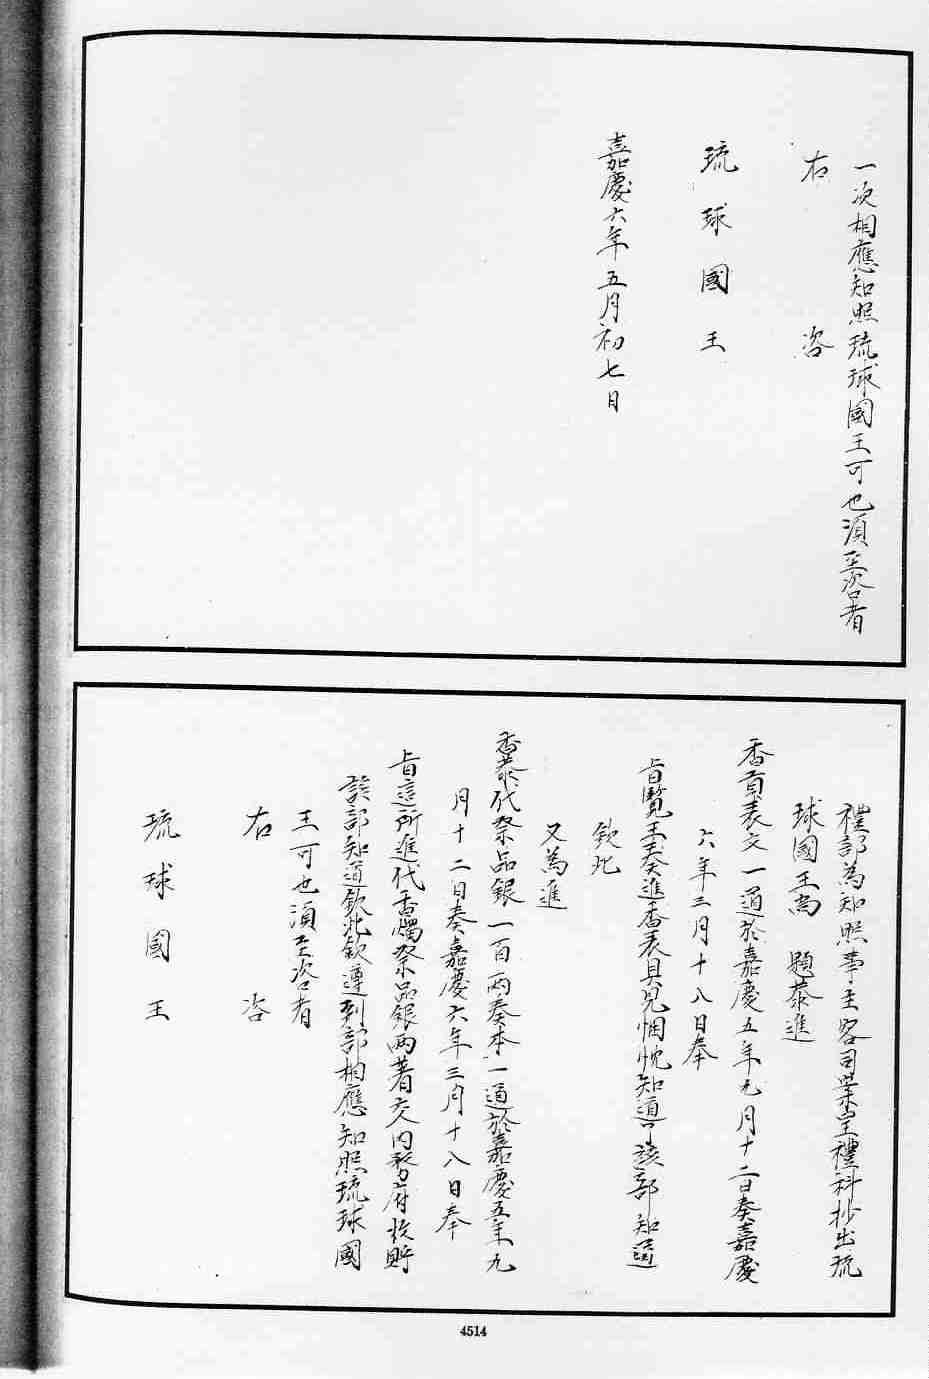 一次相應知照琉球國王可也須至咨者
右咨
琉球國王
嘉慶六年五月初七日
禮部為知照事主客司案呈禮科抄出琉
球國王尚 題恭進
香貢表文一道於嘉慶五年九月十二日奏嘉慶
六年三月十八日奉
旨覽王奏進香表具見悃忱知道了該部知道
欽此
又為進
香恭代祭品銀一百兩奏本一道於嘉慶五年九
月十二日奏嘉慶六年三月十八日奉
旨這所進代香燭祭品銀兩著交內務府收貯
該部知道欽此欽遵到部相應知照琉球國
王可也須至咨者
右咨
琉球國王
4514